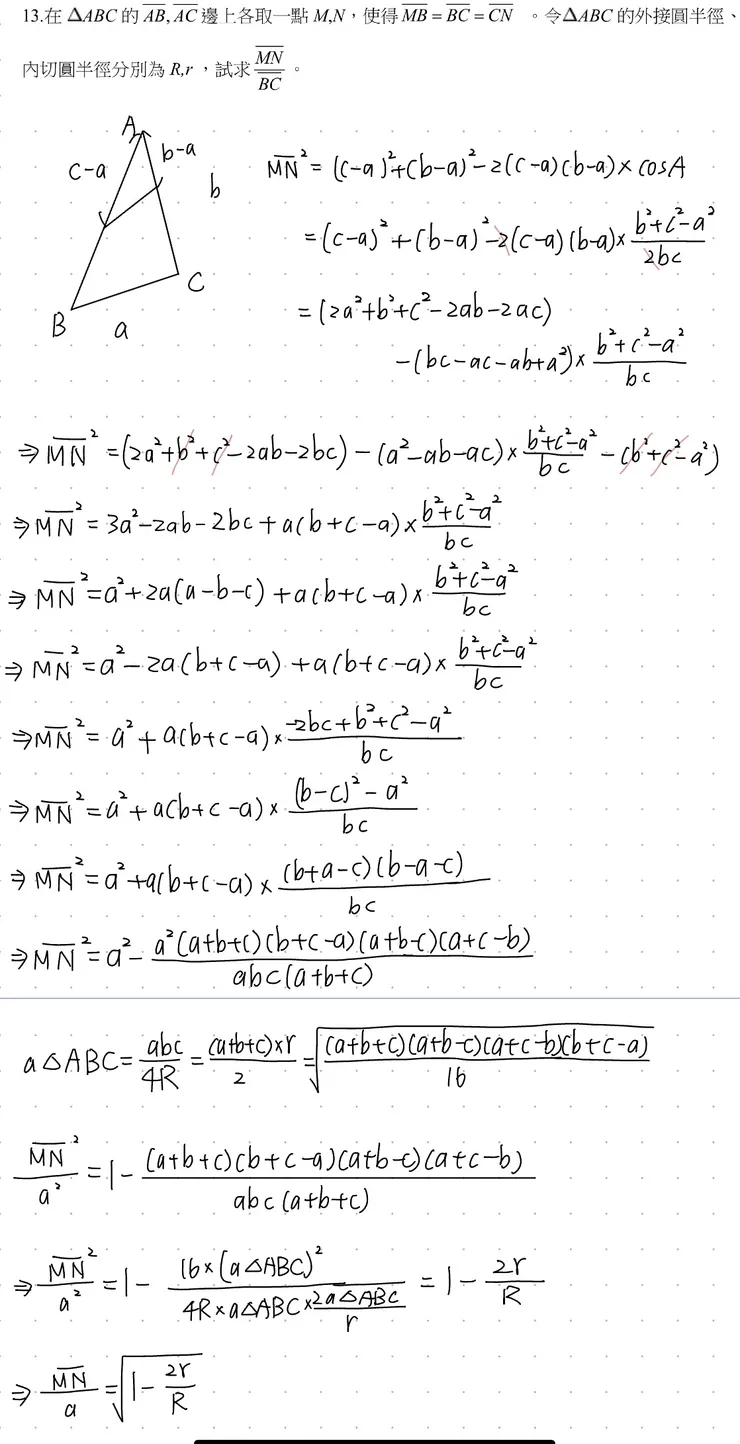 13.在 ΔABC 的 \overline{AB}, \overline{AC} 邊上各取一點 M,N，使得 \overline{MB} = \overline{BC} = \overline{CN} 。令 ΔABC 的外接圓半徑、
內切圓半徑分別為 R,r ，試求 \frac{\overline{MN}}{\overline{BC}} 。
A
c-a
b-a
b
C
B
a
\overline{MN}^2 = (c-a)^2+(b-a)^2-2(c-a)(b-a)×cosA
=(c-a)^2+(b-a)^2-2(c-a)(b-a)×\frac{b^2+c^2-a^2}{2bc}
=(2a^2+b^2+c^2-2ab-2ac)
-(bc-ac-ab+a^2)×\frac{b^2+c^2-a^2}{bc}
⇒\overline{MN}^2=(2a^2+b^2+c^2-2ab-2bc)-(a^2-ab-ac)×\frac{b^2+c^2-a^2}{bc}-(b^2+c^2-a^2)
⇒\overline{MN}^2=3a^2-2ab-2bc+a(b+c-a)×\frac{b^2+c^2-a^2}{bc}
⇒\overline{MN}^2=a^2+2a(a-b-c)+a(b+c-a)×\frac{b^2+c^2-a^2}{bc}
⇒\overline{MN}^2=a^2-2a(b+c-a)+a(b+c-a)×\frac{b^2+c^2-a^2}{bc}
⇒\overline{MN}^2=a^2+a(b+c-a)×\frac{-2bc+b^2+c^2-a^2}{bc}
⇒\overline{MN}^2=a^2+a(b+c-a)×\frac{(b-c)^2-a^2}{bc}
⇒\overline{MN}^2=a^2+a(b+c-a)×\frac{(b+a-c)(b-a-c)}{bc}
⇒\overline{MN}^2=a^2-\frac{a^2(a+b+c)(b+c-a)(a+b-c)(a+c-b)}{abc(a+b+c)}
a△ABC=\frac{abc}{4R}=\frac{(a+b+c)×r}{2}=\sqrt{\frac{(a+b+c)(a+b-c)(a+c-b)(b+c-a)}{16}}
\frac{\overline{MN}^2}{a^2}=1-\frac{(a+b+c)(b+c-a)(a+b-c)(a+c-b)}{abc(a+b+c)}
⇒\frac{\overline{MN}^2}{a^2}=1-\frac{16×(a△ABC)^2}{4R×a△ABC×\frac{2a△ABC}{r}}=1-\frac{2r}{R}
⇒\frac{\overline{MN}}{a}=\sqrt{1-\frac{2r}{R}}